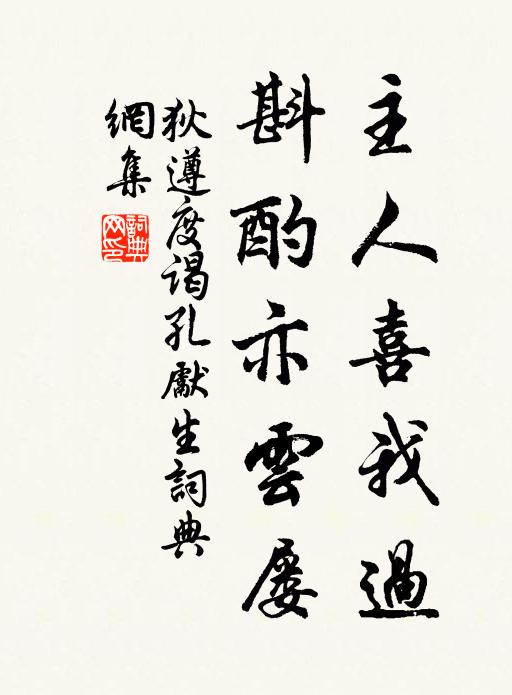 主人喜我過
斟酌亦雲屡
狄遵度謁孔獻生詞典
網集
詞典網印